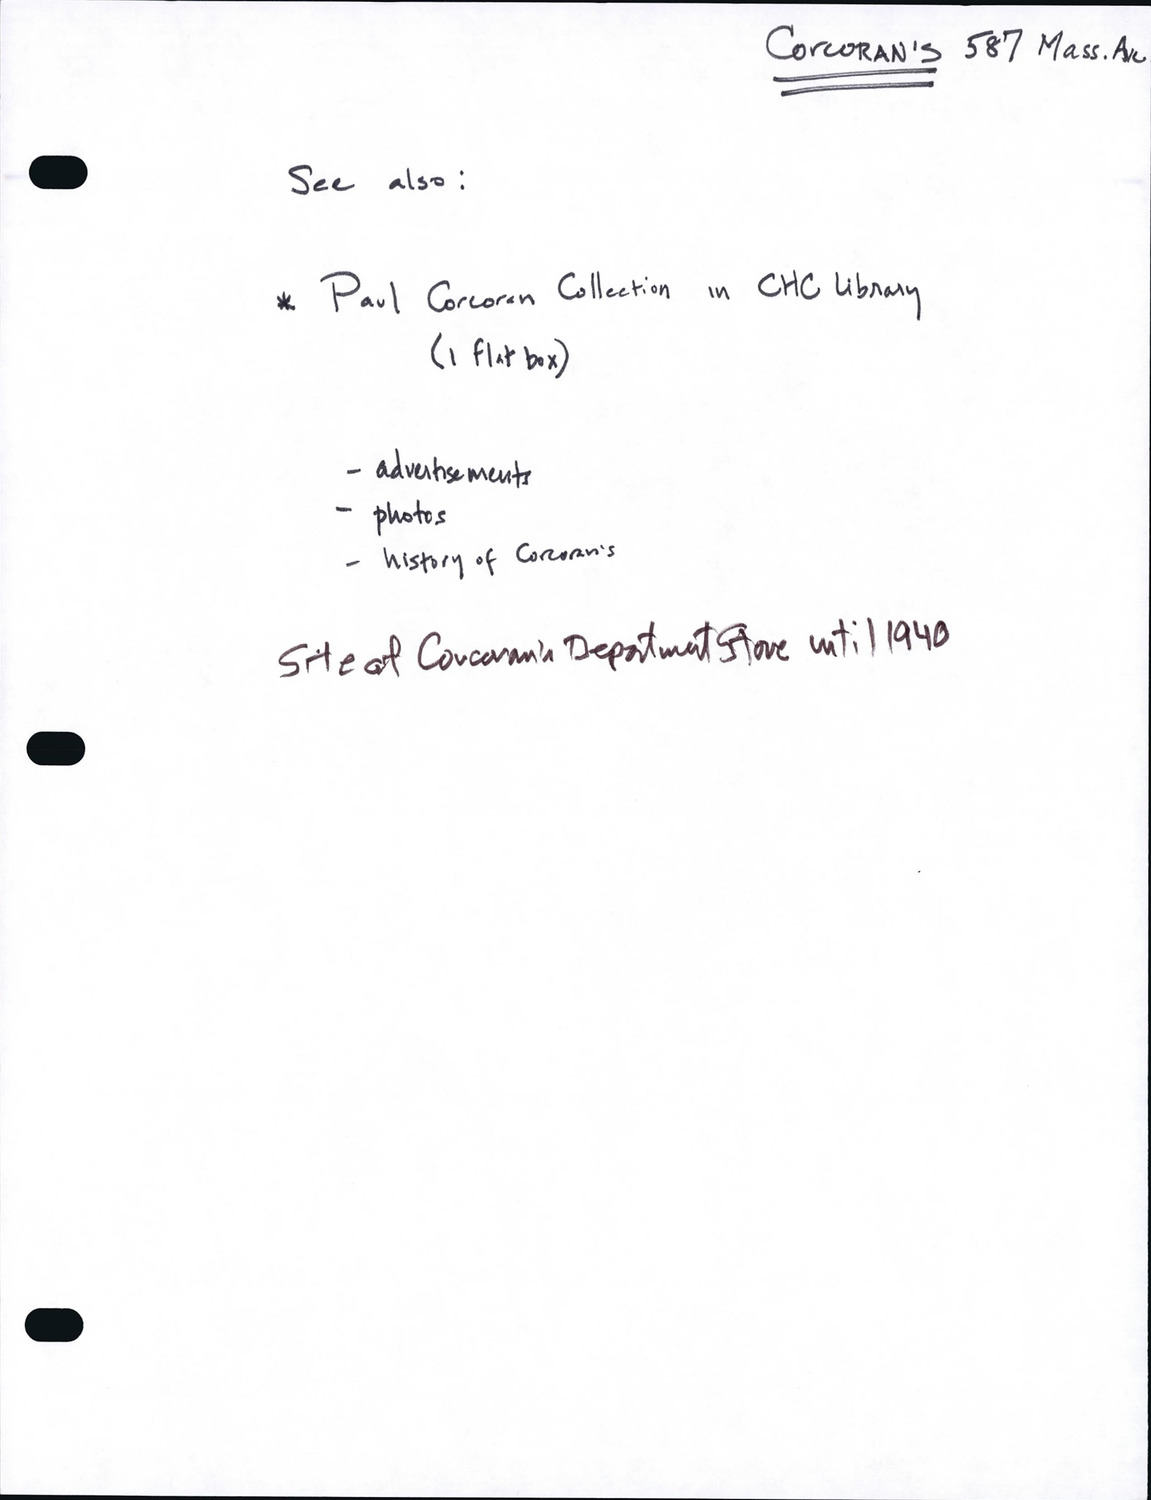 Corcoran's 587 Mass. Ave
See also:
* Paul Corcoran Collection in CHC Library
(1 flat box)
- advertisements
- photos
- history of Corcoran's
Site of Corcoran's Department Store until 1940